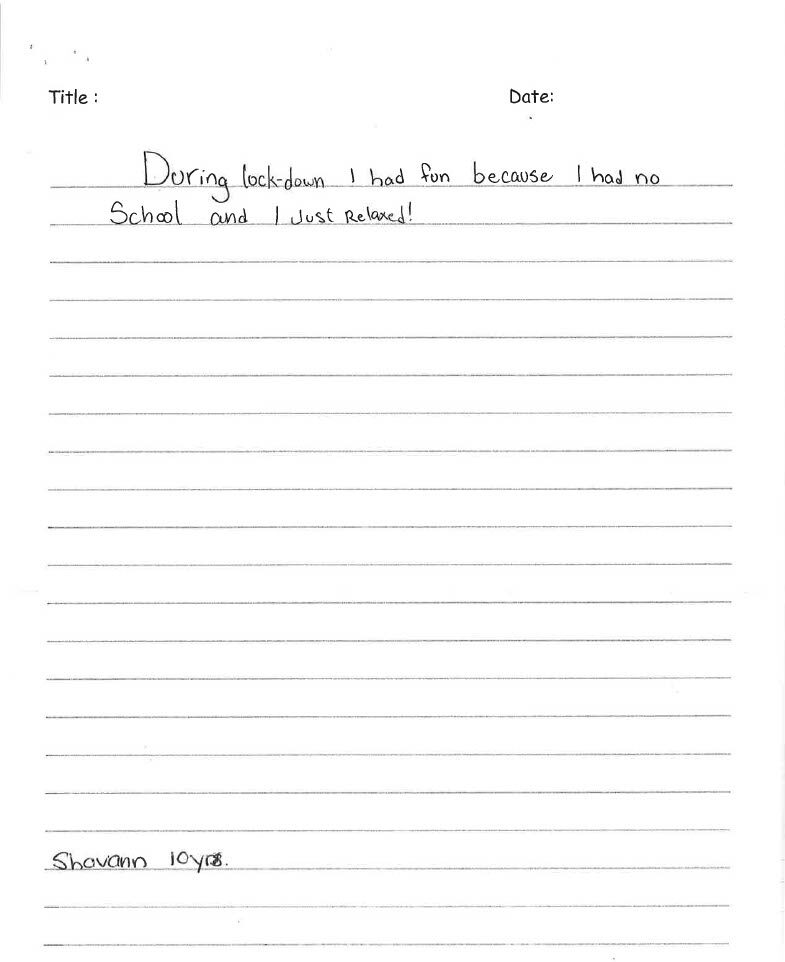 Title : Date:
During lock-down I had fun because I had no
School and I Just Relaxed!
Shavann 10yrs.